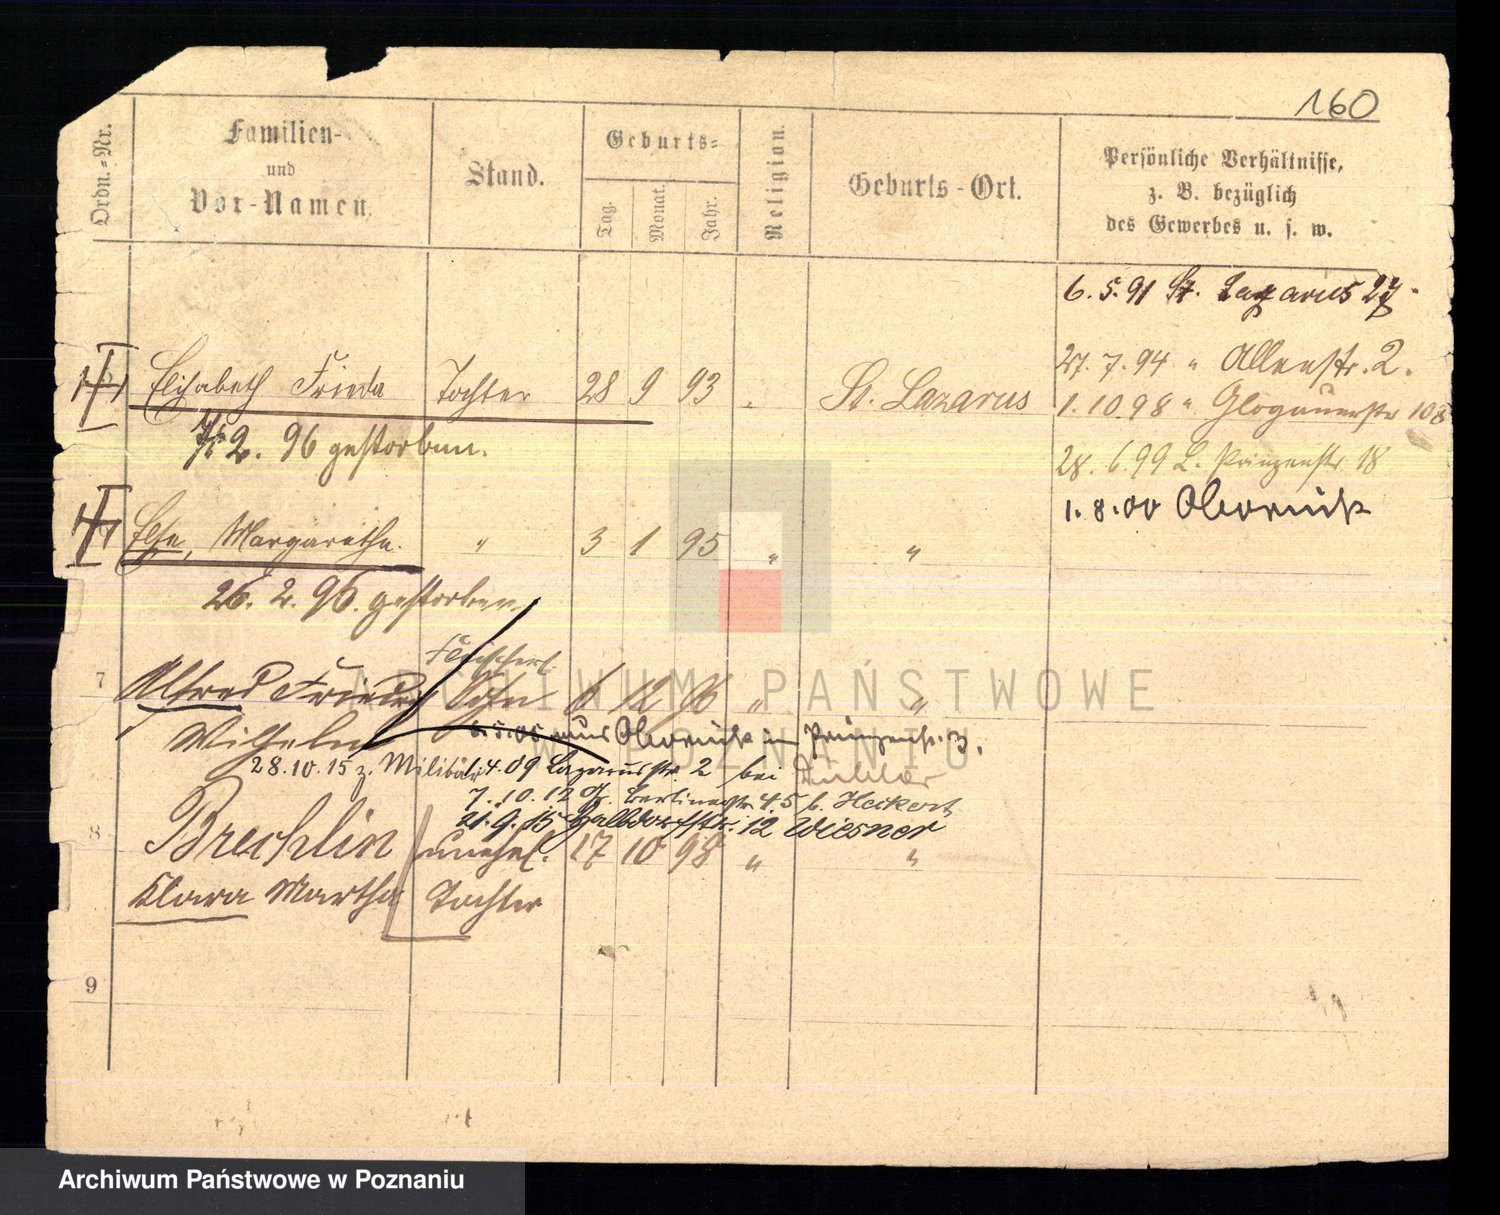 160
Ordn.-Nr.
Familien-
und
Vor-Namen.
Stand.
Geburts-
Tag.
Monat.
Jahr.
Religion.
Geburts-Ort.
Persönliche Verhältnisse,
z. B. bezüglich
des Gewerbes u. s. w.
6. 5. 91 St. Lazarus 27.
27. 7. 94 " Allenstr. 2.
Elisabeth Frieda Tochter 28 9 93 " St. Lazarus
1. 10 98 " Glogauerstr 108
2. 96 gestorben.
28. 6. 99 L. Prinzenstr. 18
1. 8. 00 Obornik
Else, Margarethe. " 3 1 95 " "
26. 2. 96. gestorben
Fleischerl.
7 Alfred Friedr. Sohn 6 12 96 " "
Wilhelm
6. 5. 08 aus Obornik in Prinzenstr. 3.
28. 10. 15 z. Militär 4. 09 Lazarusstr. 2 bei
7. 10. 12 Berlinerstr. 45 b. Heikert
21. 9. 15 12 Wiesner
8 Brechlin unehel. 17 10 98 " "
Klara Martha Tochter
9
ARCHIWUM PAŃSTWOWE
W POZNANIU
Archiwum Państwowe w Poznaniu